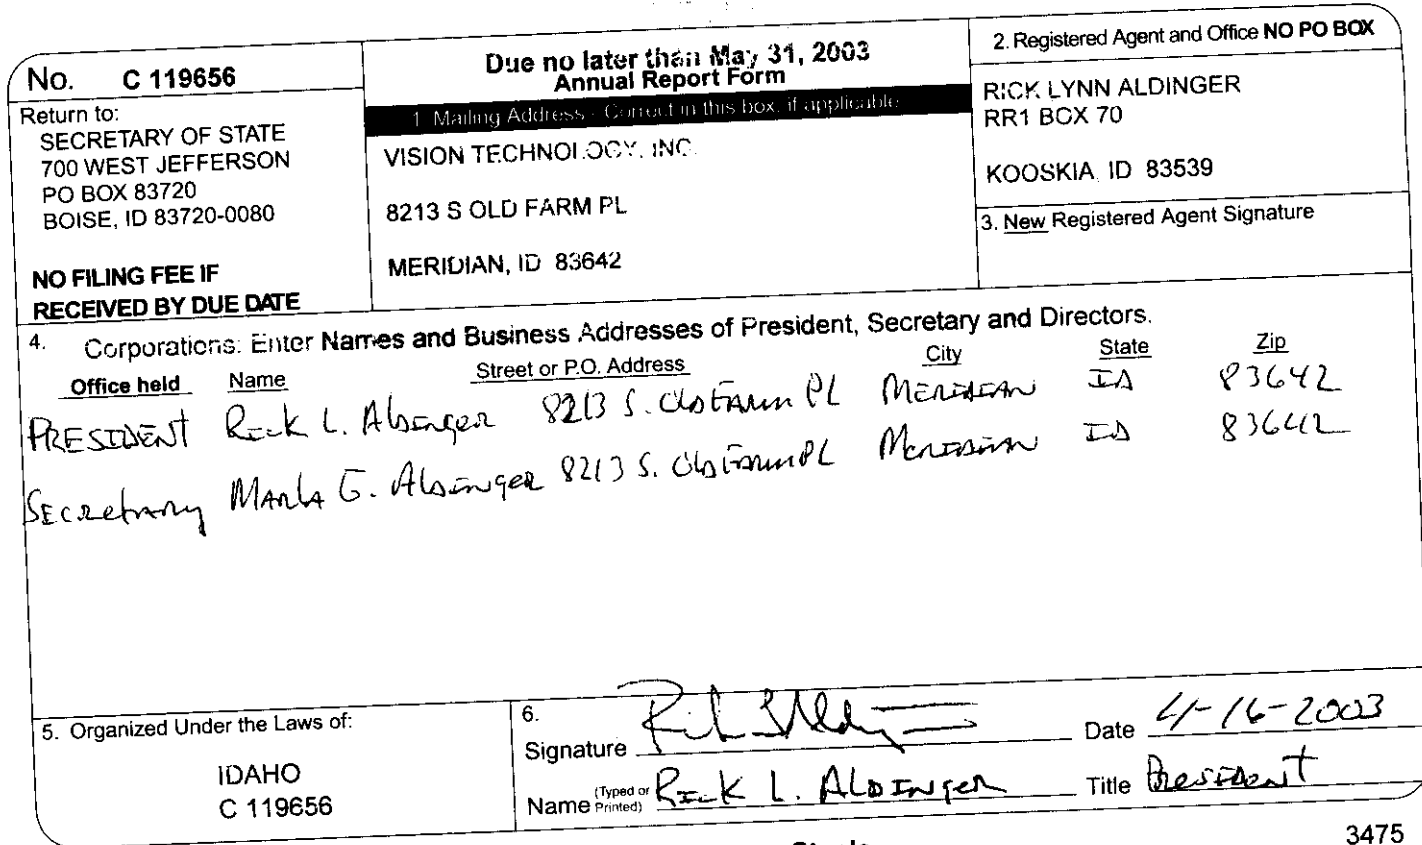 No. C 119656
Return to:
SECRETARY OF STATE
700 WEST JEFFERSON
PO BOX 83720
BOISE, ID 83720-0080
NO FILING FEE IF
RECEIVED BY DUE DATE
Due no later than May 31, 2003
Annual Report Form
1. Mailing Address - Correct in this box, if applicable
VISION TECHNOLOGY, INC.
8213 S OLD FARM PL
MERIDIAN, ID 83642
2. Registered Agent and Office NO PO BOX
RICK LYNN ALDINGER
RR1 BOX 70
KOOSKIA, ID 83539
3. New Registered Agent Signature
4. Corporations: Enter Names and Business Addresses of President, Secretary and Directors.
Office held Name Street or P.O. Address City State Zip
PRESIDENT Rick L. Aldinger 8213 S. Old Farm PL MERIDIAN ID 83642
Secretary Marla G. Aldinger 8213 S. Old Farm PL Meridian ID 83642
5. Organized Under the Laws of:
IDAHO
C 119656
6.
Signature Date 4-16-2003
Name (Typed or Printed) Rick L. Aldinger Title President
3475